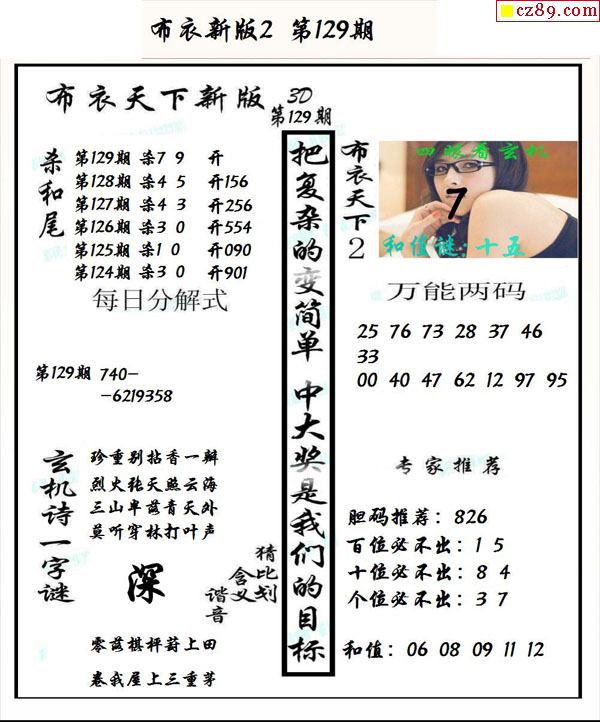 cz89.com
布衣新版2 第129期
布衣天下新版
3D
第129期
杀和尾
第129期 杀7 9 开
第128期 杀4 5 开156
第127期 杀4 3 开256
第126期 杀3 0 开554
第125期 杀1 0 开090
第124期 杀3 0 开901
每日分解式
第129期 740-
-6219358
玄机诗一字谜
珍重别拈香一瓣
烈火张天照云海
三山半落青天外
莫听穿林打叶声
深
猜比划
含义
谐音
零落棋枰葑上田
卷我屋上三重茅
把复杂的变简单 中大奖是我们的目标
布衣天下2
四眼看玄机
7
和值谜:十五
万能两码
25 76 73 28 37 46
33
00 40 47 62 12 97 95
专家推荐
胆码推荐:826
百位必不出:1 5
十位必不出:8 4
个位必不出:3 7
和值:06 08 09 11 12